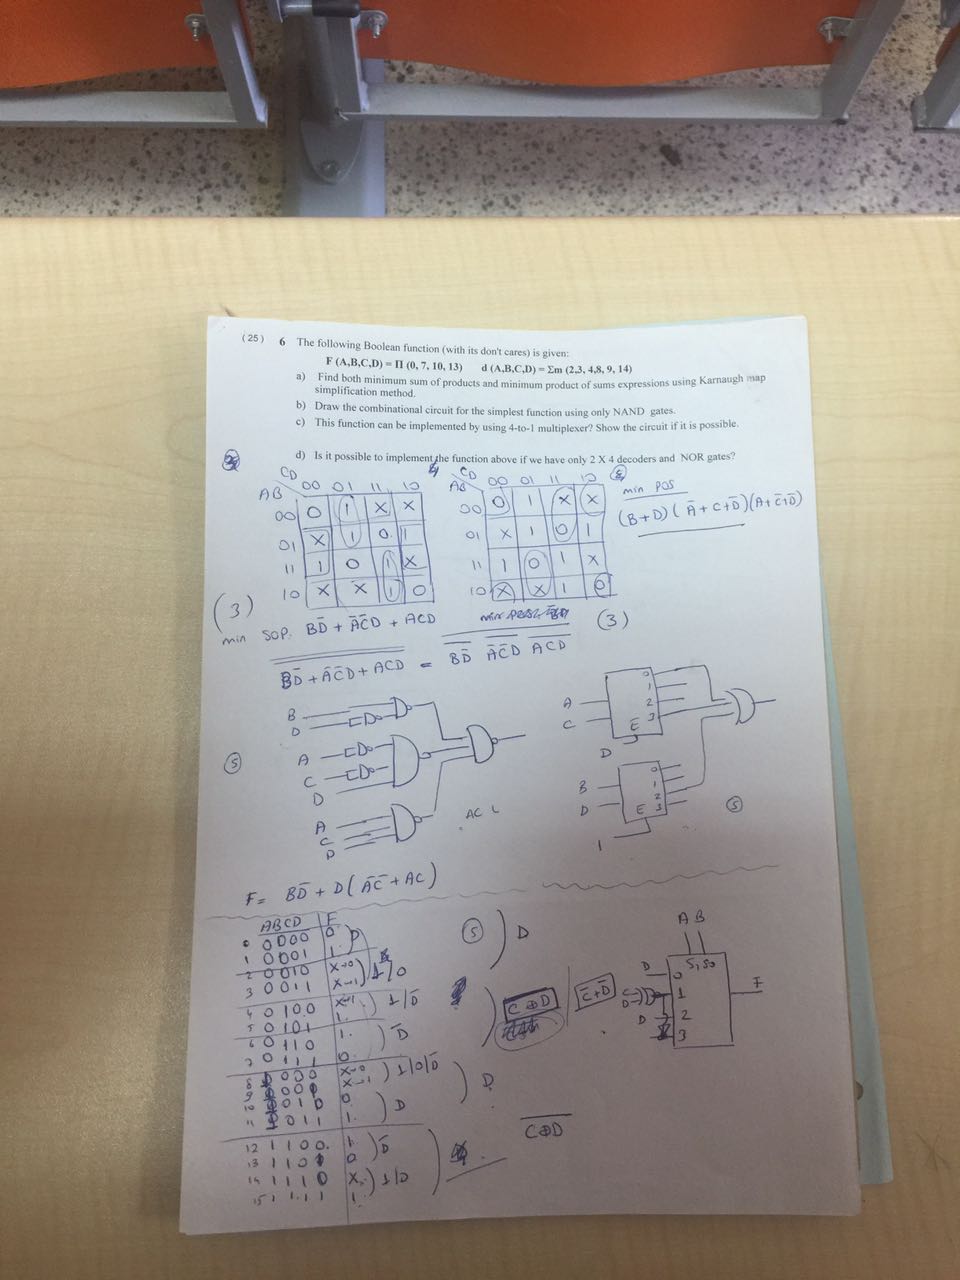 (25) 6 The following Boolean function (with its don't cares) is given:
F (A,B,C,D) = Π (0, 7, 10, 13) d (A,B,C,D) = Σm (2,3, 4,8, 9, 14)
a) Find both minimum sum of products and minimum product of sums expressions using Karnaugh map
simplification method.
b) Draw the combinational circuit for the simplest function using only NAND gates.
c) This function can be implemented by using 4-to-1 multiplexer? Show the circuit if it is possible.
d) Is it possible to implement the function above if we have only 2 X 4 decoders and NOR gates?
CD 00 01 11 10
AB
00 0 1 X X
01 X 1 0 1
11 1 0 1 X
10 X X 1 0
CD 00 01 11 10
AB
00 0 1 X X
01 X 1 0 1
11 1 0 1 X
10 X X 1 0
min POS
(B+D)(A̅+C+D̅)(A+C̅+D̅)
(3)
min SOP: BD̅ + A̅C̅D + ACD
(3)
BD̅ + A̅C̅D + ACD = BD̅ A̅C̅D ACD
B
D
A
C
D
A
C
D
(5)
AC
A
C
D
0
1
2
3
E
B
D
1
0
1
2
3
E
(5)
F = BD̅ + D(A̅C̅ + AC)
ABCD F
0 0000 0
1 0001 1
D
2 0010 X→0
3 0011 X→1
1/0
4 0100 X→1
5 0101 1
1/D̅
6 0110 1
7 0111 0
D̅
8 1000 X→0
9 1001 X→1
1/0/D̅
10 1010 0
11 1011 1
D
12 1100 1
13 1101 0
D̅
14 1110 X
15 1111 1
1/D
(5)
D
C⊕D
C̅+D̅
D
C⊕D
A B
S1 S0
D 0
C
D 1
D 2
3
F